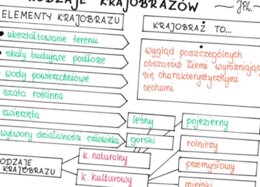 RODZAJE KRAJOBRAZÓW
ELEMENTY KRAJOBRAZU
ukształtowanie terenu
skały budujące podłoże
wody powierzchniowe
szata roślinna
zwierzęta
wytwory działalności człowieka
KRAJOBRAZ TO...
wygląd poszczególnych
obszarów Ziemi wyróżniający
się charakterystycznymi
cechami
leśny
górski
pojezierny
rolniczy
przemysłowy
miejski
RODZAJE
KRAJOBRAZU
k. naturalny
k. kulturowy